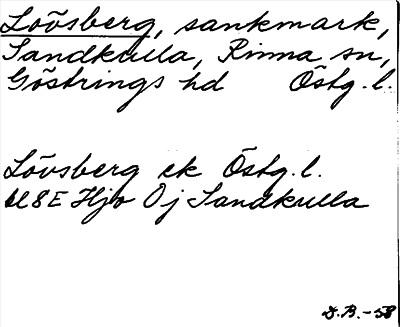 Lövsberg, sankmark,
Sandkulla, Rinna sn,
Göstrings hd Östg.l.
Lövsberg ek Östg.l.
8E Hjo 0j Sandkulla
D.B.-58